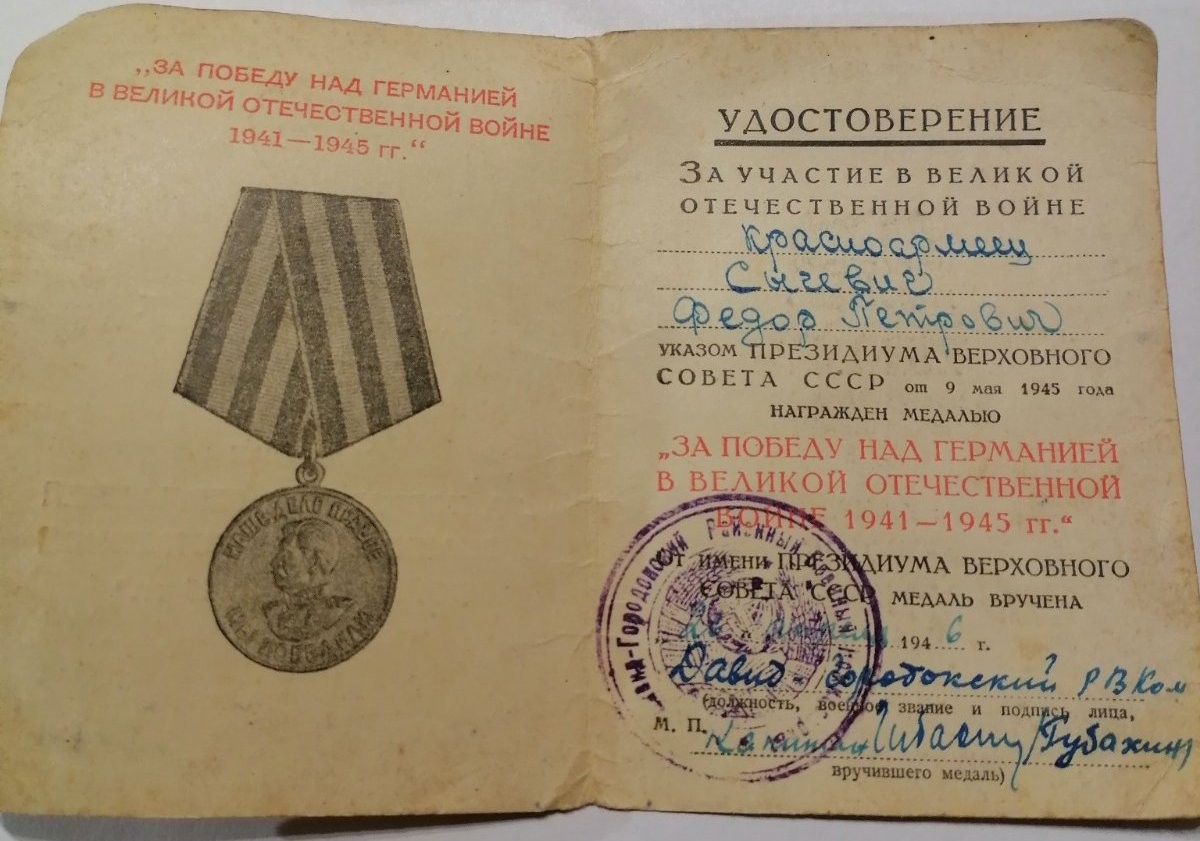 „ЗА ПОБЕДУ НАД ГЕРМАНИЕЙ
В ВЕЛИКОЙ ОТЕЧЕСТВЕННОЙ ВОЙНЕ
1941—1945 гг.“
НАШЕ ДЕЛО ПРАВОЕ
МЫ ПОБЕДИЛИ
УДОСТОВЕРЕНИЕ
ЗА УЧАСТИЕ В ВЕЛИКОЙ
ОТЕЧЕСТВЕННОЙ ВОЙНЕ
Красноармеец
Сычевич
Федор Петрович
УКАЗОМ ПРЕЗИДИУМА ВЕРХОВНОГО
СОВЕТА СССР от 9 мая 1945 года
НАГРАЖДЕН МЕДАЛЬЮ
„ЗА ПОБЕДУ НАД ГЕРМАНИЕЙ
В ВЕЛИКОЙ ОТЕЧЕСТВЕННОЙ
ВОЙНЕ 1941—1945 гг.“
ОТ ИМЕНИ ПРЕЗИДИУМА ВЕРХОВНОГО
СОВЕТА СССР МЕДАЛЬ ВРУЧЕНА
1946 г.
Давид Городокский РВКом
(должность, военное звание и подпись лица,
М. П. Капитан /Губахин/
вручившего медаль)
Давид-Городокский Районный Военный